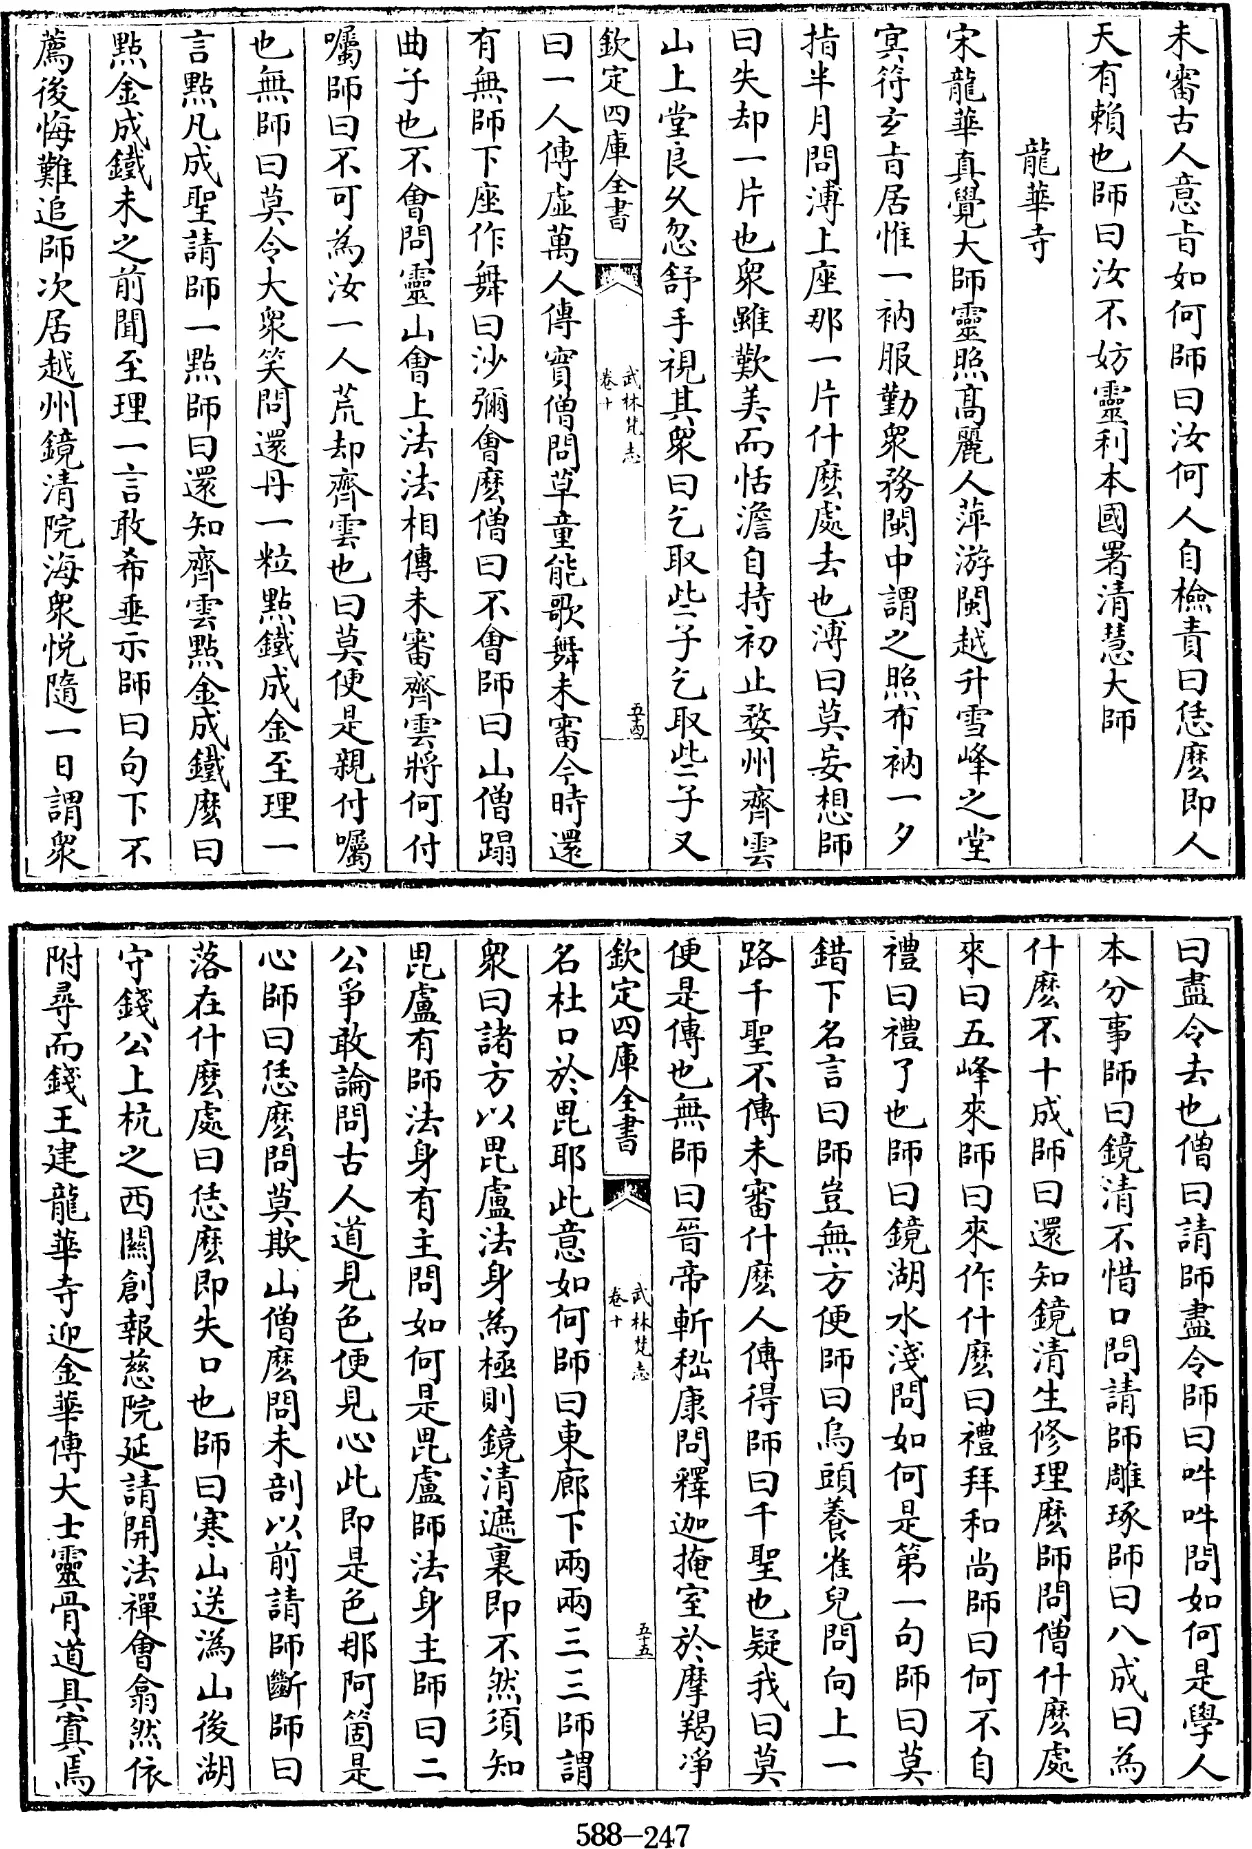 未審古人意㫖如何師曰汝何人自檢責曰恁麽即人
天有賴也師曰汝不妨靈利本國署清慧大師
龍華寺
宋龍華真覺大師靈照髙麗人萍游閩越升雪峰之堂
冥符𤣥㫖居惟一衲服勤衆務閩中謂之照布衲一夕
指半月問溥上座那一片什麽處去也溥曰莫妄想師
曰失却一片也衆雖歎美而恬澹自持初止婺州齊雲
山上堂良久忽舒手視其衆曰乞取些子乞取些子又
欽定四庫全書
武林梵志
卷十
五十四
曰一人傳虚萬人傳實僧問草童能歌舞未審今時還
有無師下座作舞曰沙彌會麽僧曰不會師曰山僧蹋
曲子也不會問靈山會上法法相傳未審齊雲將何付
囑師曰不可為汝一人荒却齊雲也曰莫便是親付囑
也無師曰莫令大衆笑問還丹一粒點鐵成金至理一
言點凡成聖請師一點師曰還知齊雲點金成鐵麽曰
點金成鐵未之前聞至理一言敢希垂示師曰句下不
薦後悔難追師次居越州鏡清院海衆悦隨一日謂衆
曰盡令去也僧曰請師盡令師曰吽吽問如何是學人
本分事師曰鏡清不惜口問請師雕琢師曰八成曰為
什麽不十成師曰還知鏡清生修理麽師問僧什麽處
來曰五峰來師曰來作什麽曰禮拜和尚師曰何不自
禮曰禮了也師曰鏡湖水淺問如何是第一句師曰莫
錯下名言曰師豈無方便師曰烏頭養雀兒問向上一
路千聖不傳未審什麽人傳得師曰千聖也疑我曰莫
便是傳也無師曰晉帝斬嵇康問釋迦掩室於摩羯淨
欽定四庫全書
武林梵志
卷十
五十五
名杜口於毘耶此意如何師曰東廊下兩兩三三師謂
衆曰諸方以毘盧法身為極則鏡清遮裏即不然須知
毘盧有師法身有主問如何是毘盧師法身主師曰二
公爭敢論問古人道見色便見心此即是色那阿箇是
心師曰恁麽問莫欺山僧麽問未剖以前請師斷師曰
落在什麽處曰恁麽即失口也師曰寒山送溈山後湖
守錢公上杭之西關創報慈院延請開法禪㑹翕然依
附尋而錢王建龍華寺迎金華傅大士靈骨道具寘焉
588-247